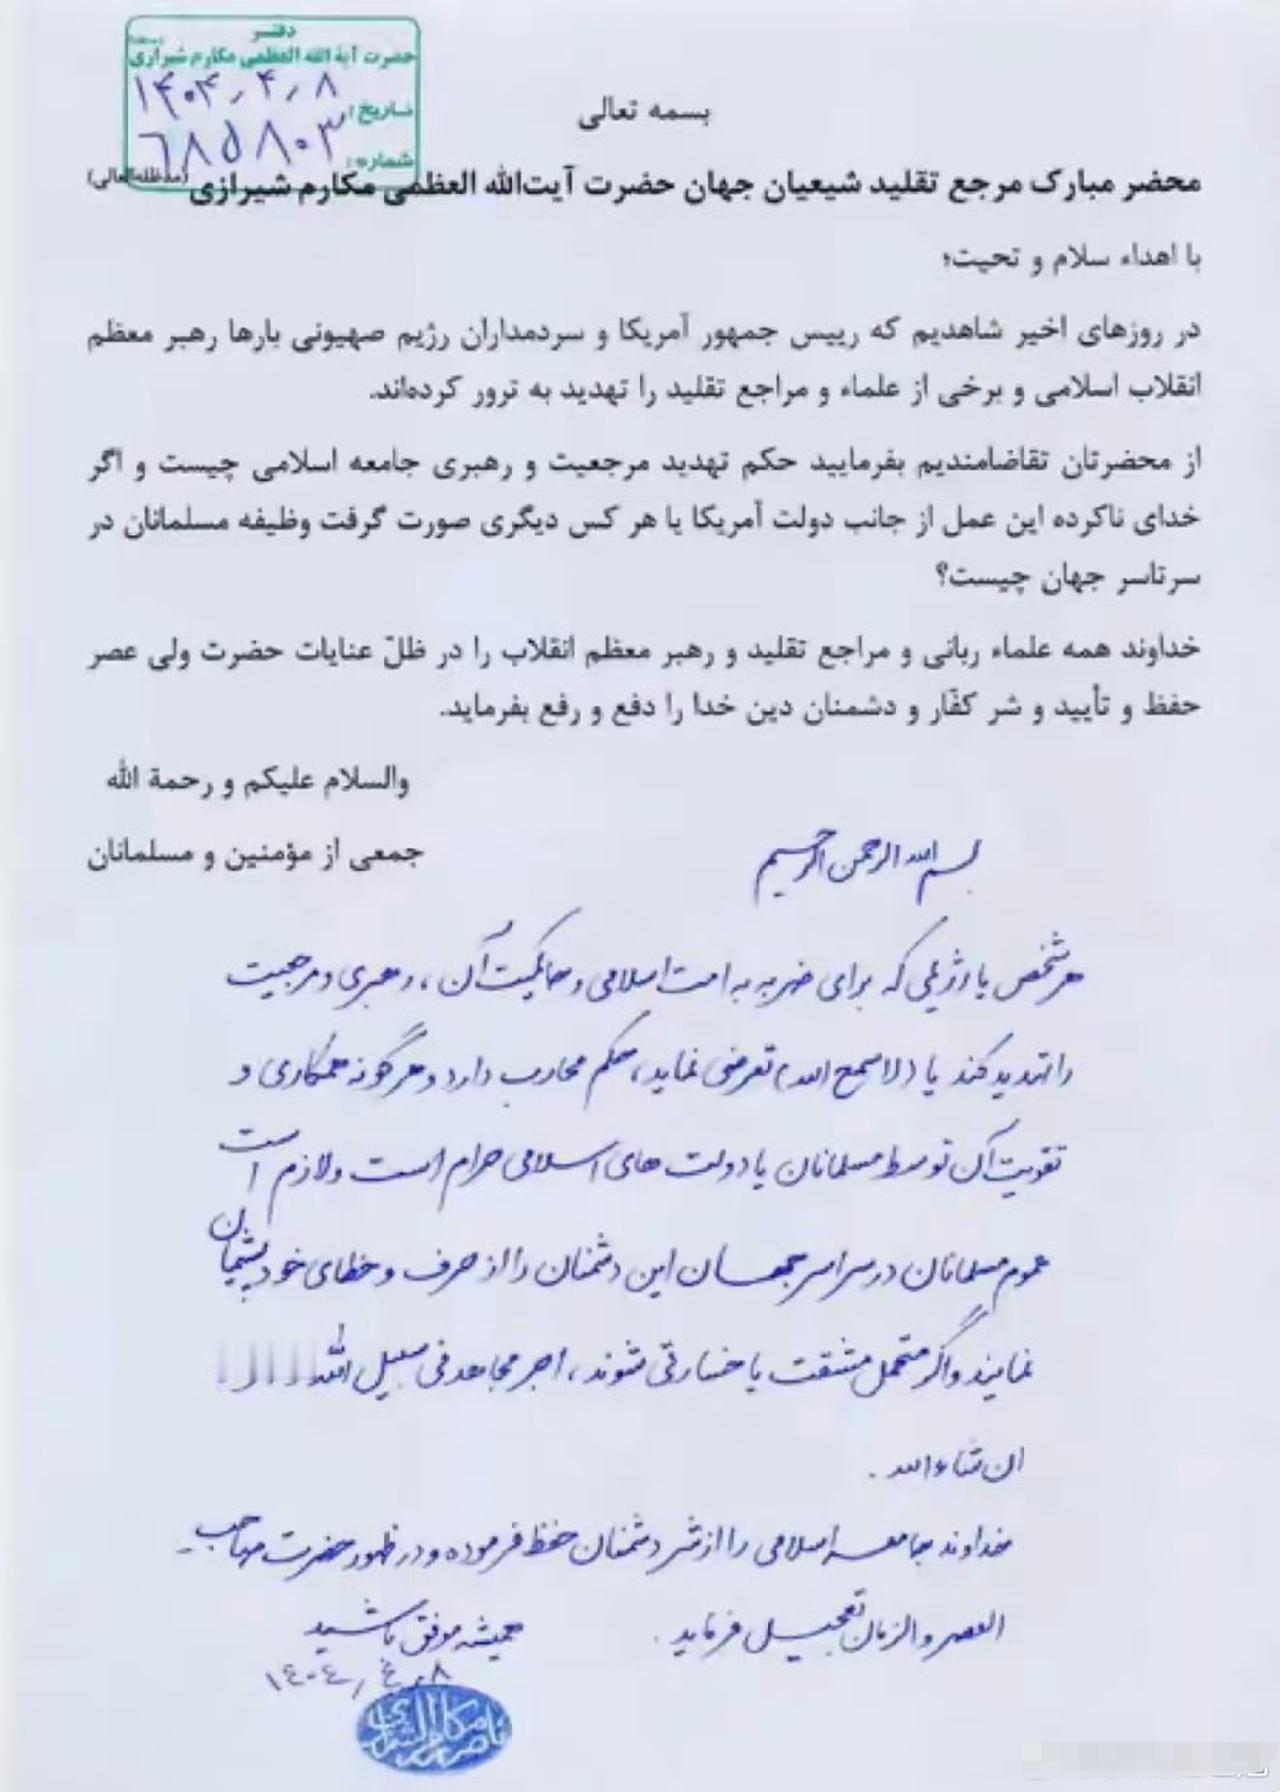 دفتر
حضرت آیة الله العظمی مکارم شیرازی
تاریخ: ۱۴۰۴٫۴٫۸
شماره: ۶۸۵۸۰۳
بسمه تعالی
محضر مبارک مرجع تقلید شیعیان جهان حضرت آیت‌الله العظمی مکارم شیرازی (مدظله‌العالی)
با اهداء سلام و تحیت؛
در روزهای اخیر شاهدیم که رییس جمهور آمریکا و سردمداران رژیم صهیونی بارها رهبر معظم
انقلاب اسلامی و برخی از علماء و مراجع تقلید را تهدید به ترور کرده‌اند.
از محضرتان تقاضامندیم بفرمایید حکم تهدید مرجعیت و رهبری جامعه اسلامی چیست و اگر
خدای ناکرده این عمل از جانب دولت آمریکا یا هر کس دیگری صورت گرفت وظیفه مسلمانان در
سرتاسر جهان چیست؟
خداوند همه علماء ربانی و مراجع تقلید و رهبر معظم انقلاب را در ظلّ عنایات حضرت ولی عصر
حفظ و تأیید و شر کفّار و دشمنان دین خدا را دفع و رفع بفرماید.
والسلام علیکم و رحمة الله
جمعی از مؤمنین و مسلمانان
بسم الله الرحمن الرحیم
هر شخص یا رژیمی که برای ضربه به امت اسلامی و حاکمیت آن، رهبری و مرجعیت
را تهدید کند یا (لا سمح الله) تعرضی نماید، حکم محارب دارد و هرگونه همکاری و
تقویت آن توسط مسلمانان یا دولت های اسلامی حرام است و لازم است
عموم مسلمانان در سراسر جهان این دشمنان را از حرف و خطای خود پشیمان
نمایند و اگر متحمل مشقت یا خسارتی شوند، اجر مجاهد فی سبیل الله را دارند
ان شاءالله.
خداوند جامعه اسلامی را از شر دشمنان حفظ فرموده و در ظهور حضرت صاحب
العصر والزمان تعجیل فرماید.
همیشه موفق باشید
۱۴۰۴٫۴٫۸
ناصر مکارم الشیرازی